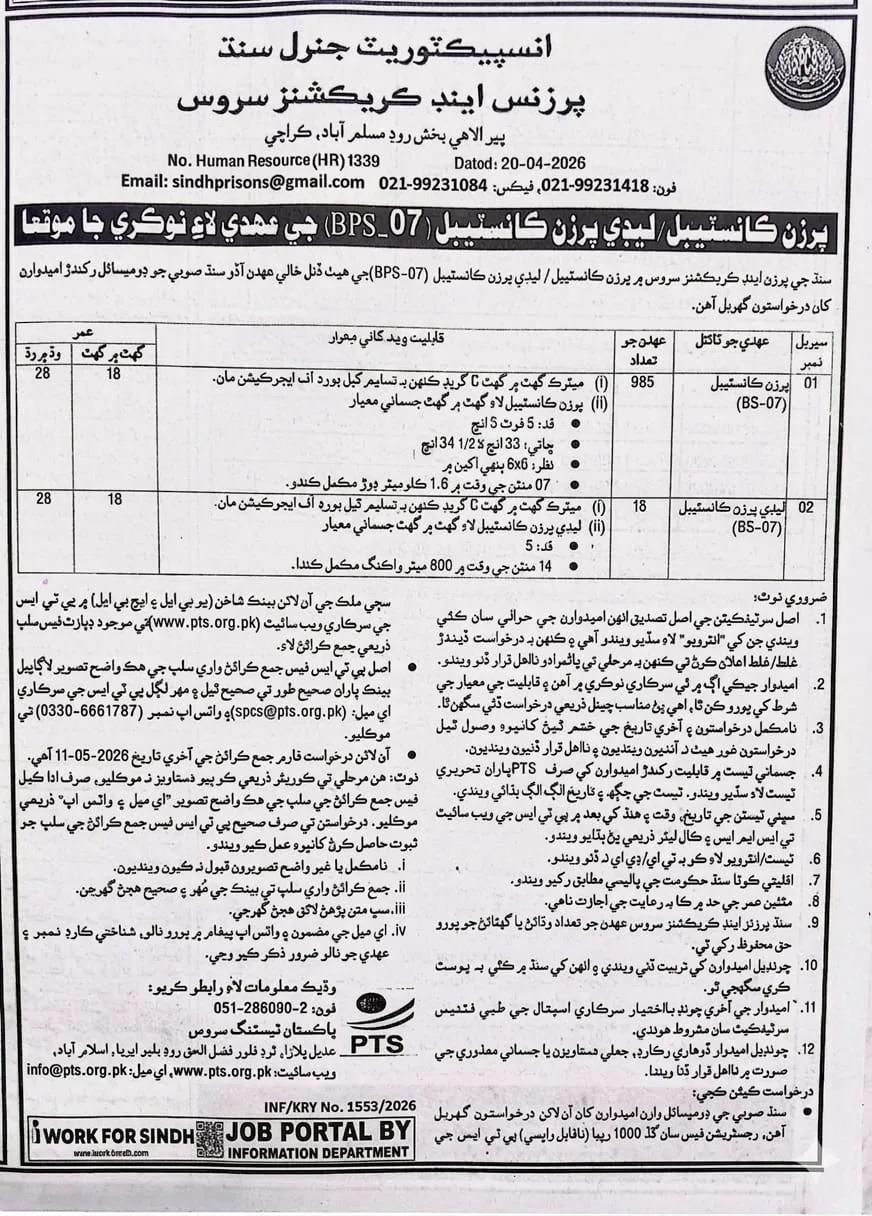 انسپيڪٽوريٽ جنرل سنڌ
پرزنس اينڊ ڪريڪشنز سروس
پير الاهي بخش روڊ مسلم آباد، ڪراچي
No. Human Resource (HR) 1339 Datod: 20-04-2026
Email: sindhprisons@gmail.com 021-99231084 :فون: 021-99231418، فيڪس
پرزن ڪانسٽيبل/ ليڊي پرزن ڪانسٽيبل (BPS_07) جي عهدي لاءِ نوڪري جا موقعا
سنڌ جي پرزن اينڊ ڪريڪشنز سروس ۾ پرزن ڪانسٽيبل / ليڊي پرزن ڪانسٽيبل (BPS-07) جي هيٺ ڏنل خالي عهدن آڏو سنڌ صوبي جو ڊوميسائل رکندڙ اميدوارن
کان درخواستون گهربل آهن.
سيريل نمبر
عهدي جو ٽائٽل
عهدن جو تعداد
قابليت ويد گاني معيار
عمر
گهٽ ۾ گهٽ
وڌ ۾ وڌ
01
پرزن ڪانسٽيبل
(BS-07)
985
(i) ميٽرڪ گهٽ ۾ گهٽ C گريڊ ڪنهن به تسليم ٿيل بورڊ آف ايجوڪيشن مان.
(ii) پرزن ڪانسٽيبل لاءِ گهٽ ۾ گهٽ جسماني معيار
● قد: 5 فوٽ 5 انچ
● ڇاتي: 33 انچ x 34 1/2 انچ
● نظر: 6x6 ٻنهي اکين ۾
● 07 منٽن جي وقت ۾ 1.6 ڪلوميٽر ڊوڙ مڪمل ڪندو.
18
28
02
ليڊي پرزن ڪانسٽيبل
(BS-07)
18
(i) ميٽرڪ گهٽ ۾ گهٽ C گريڊ ڪنهن به تسليم ٿيل بورڊ آف ايجوڪيشن مان.
(ii) ليڊي پرزن ڪانسٽيبل لاءِ گهٽ ۾ گهٽ جسماني معيار
● قد: 5
● 14 منٽن جي وقت ۾ 800 ميٽر واڪنگ مڪمل ڪندا.
18
28
ضروري نوٽ:
1. اصل سرٽيفڪيٽن جي اصل تصديق انهن اميدوارن جي حراني سان ڪئي
ويندي جن کي "انٽرويو" لاءِ سڏيو ويندو آهي ۽ ڪنهن به درخواست ڏيندڙ
غلط/غلط اعلان ڪرڻ تي ڪنهن به مرحلي تي پاڻمرادو نااهل قرار ڏنو ويندو.
2. اميدوار جيڪي اڳ ۾ ئي سرڪاري نوڪري ۾ آهن ۽ قابليت جي معيار جي
شرط کي پورو ڪن ٿا، اهي پڻ مناسب چينل ذريعي درخواست ڏئي سگهن ٿا.
3. نامڪمل درخواستون ۽ آخري تاريخ جي ختم ٿيڻ کانپوءِ وصول ٿيل
درخواستون غور هيٺ نه آنديون وينديون ۽ نااهل قرار ڏنيون وينديون.
4. جسماني ٽيسٽ ۾ قابليت رکندڙ اميدوارن کي صرف PTS پاران تحريري
ٽيسٽ لاءِ سڏيو ويندو. ٽيسٽ جي جڳهه ۽ تاريخ الڳ الڳ ٻڌائي ويندي.
5. سڀني ٽيسٽن جي تاريخ، وقت ۽ هنڌ کي بعد ۾ پي ٽي ايس جي ويب سائيٽ
تي ايس ايم ايس ۽ ڪال ليٽر ذريعي پڻ ٻڌايو ويندو.
6. ٽيسٽ/انٽرويو لاءِ ڪو به ٽي اي/ڊي اي نه ڏنو ويندو.
7. اقليتي ڪوٽا سنڌ حڪومت جي پاليسي مطابق رکيو ويندو.
8. مٿئين عمر جي حد ۾ ڪا به رعايت جي اجازت ناهي.
9. سنڌ پرزنز اينڊ ڪريڪشنز سروس عهدن جو تعداد وڌائڻ يا گهٽائڻ جو پورو
حق محفوظ رکي ٿي.
10. چونڊيل اميدوارن کي تربيت ڏني ويندي ۽ انهن کي سنڌ ۾ ڪٿي به پوسٽ
ڪري سگهجي ٿو.
11. اميدوار جي آخري چونڊ بااختيار سرڪاري اسپتال جي طبي فٽنيس
سرٽيفڪيٽ سان مشروط هوندي.
12. چونڊيل اميدوار ڏوهاري رڪارڊ، جعلي دستاويزن يا جسماني معذوري جي
صورت ۾ نااهل قرار ڏنا ويندا.
درخواست ڪيئن ڪجي:
● سنڌ صوبي جي ڊوميسائل وارن اميدوارن کان آن لائن درخواستون گهربل
آهن، رجسٽريشن فيس سان گڏ 1000 رپيا (ناقابل واپسي) پي ٽي ايس جي
سڄي ملڪ جي آن لائن بينڪ شاخن (يو بي ايل ۽ ايڇ بي ايل) ۾ پي ٽي ايس
جي سرڪاري ويب سائيٽ (www.pts.org.pk) تي موجود ڊپازٽ فيس سلپ
ذريعي جمع ڪرائڻ لاءِ.
● اصل پي ٽي ايس فيس جمع ڪرائڻ واري سلپ جي هڪ واضح تصوير لاڳاپيل
بينڪ پاران صحيح طور تي صحيح ٿيل ۽ مهر لڳل پي ٽي ايس جي سرڪاري
اي ميل: (spcs@pts.org.pk) ۽ واٽس اپ نمبر (0330-6661787) تي
موڪليو.
● آن لائن درخواست فارم جمع ڪرائڻ جي آخري تاريخ 2026-05-11 آهي.
نوٽ: هن مرحلي تي ڪوريئر ذريعي ڪو پيپر دستاويز نه موڪليو، صرف ادا ڪيل
فيس جمع ڪرائڻ جي سلپ جي هڪ واضح تصوير "اي ميل ۽ واٽس اپ" ذريعي
موڪليو. درخواستن تي صرف صحيح پي ٽي ايس فيس جمع ڪرائڻ جي سلپ جو
ثبوت حاصل ڪرڻ کانپوءِ عمل ڪيو ويندو.
i. نامڪمل يا غير واضح تصويرون قبول نه ڪيون وينديون.
ii. جمع ڪرائڻ واري سلپ تي بينڪ جي مُهر ۽ صحيح هجڻ گهرجن.
iii. سڀ متن پڙهڻ لائق هجڻ گهرجي.
iv. اي ميل جي مضمون ۽ واٽس اپ پيغام ۾ پورو نالو، شناختي ڪارڊ نمبر ۽
عهدي جو نالو ضرور ذڪر ڪيو وڃي.
وڌيڪ معلومات لاءِ رابطو ڪريو:
فون: 2-286090-051
پاڪستان ٽيسٽنگ سروس
عديل پلازا، ٿرڊ فلور فضل الحق روڊ بليو ايريا، اسلام آباد,
ويب سائيٽ: www.pts.org.pk، اي ميل: info@pts.org.pk
PTS
INF/KRY No. 1553/2026
i WORK FOR SINDH
JOB PORTAL BY
INFORMATION DEPARTMENT